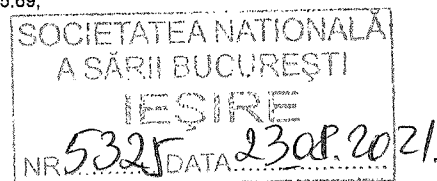 5.69,
SOCIETATEA NAȚIONALĂ
A SĂRII BUCUREȘTI
IEȘIRE
NR 5325 DATA 23.08.2021.